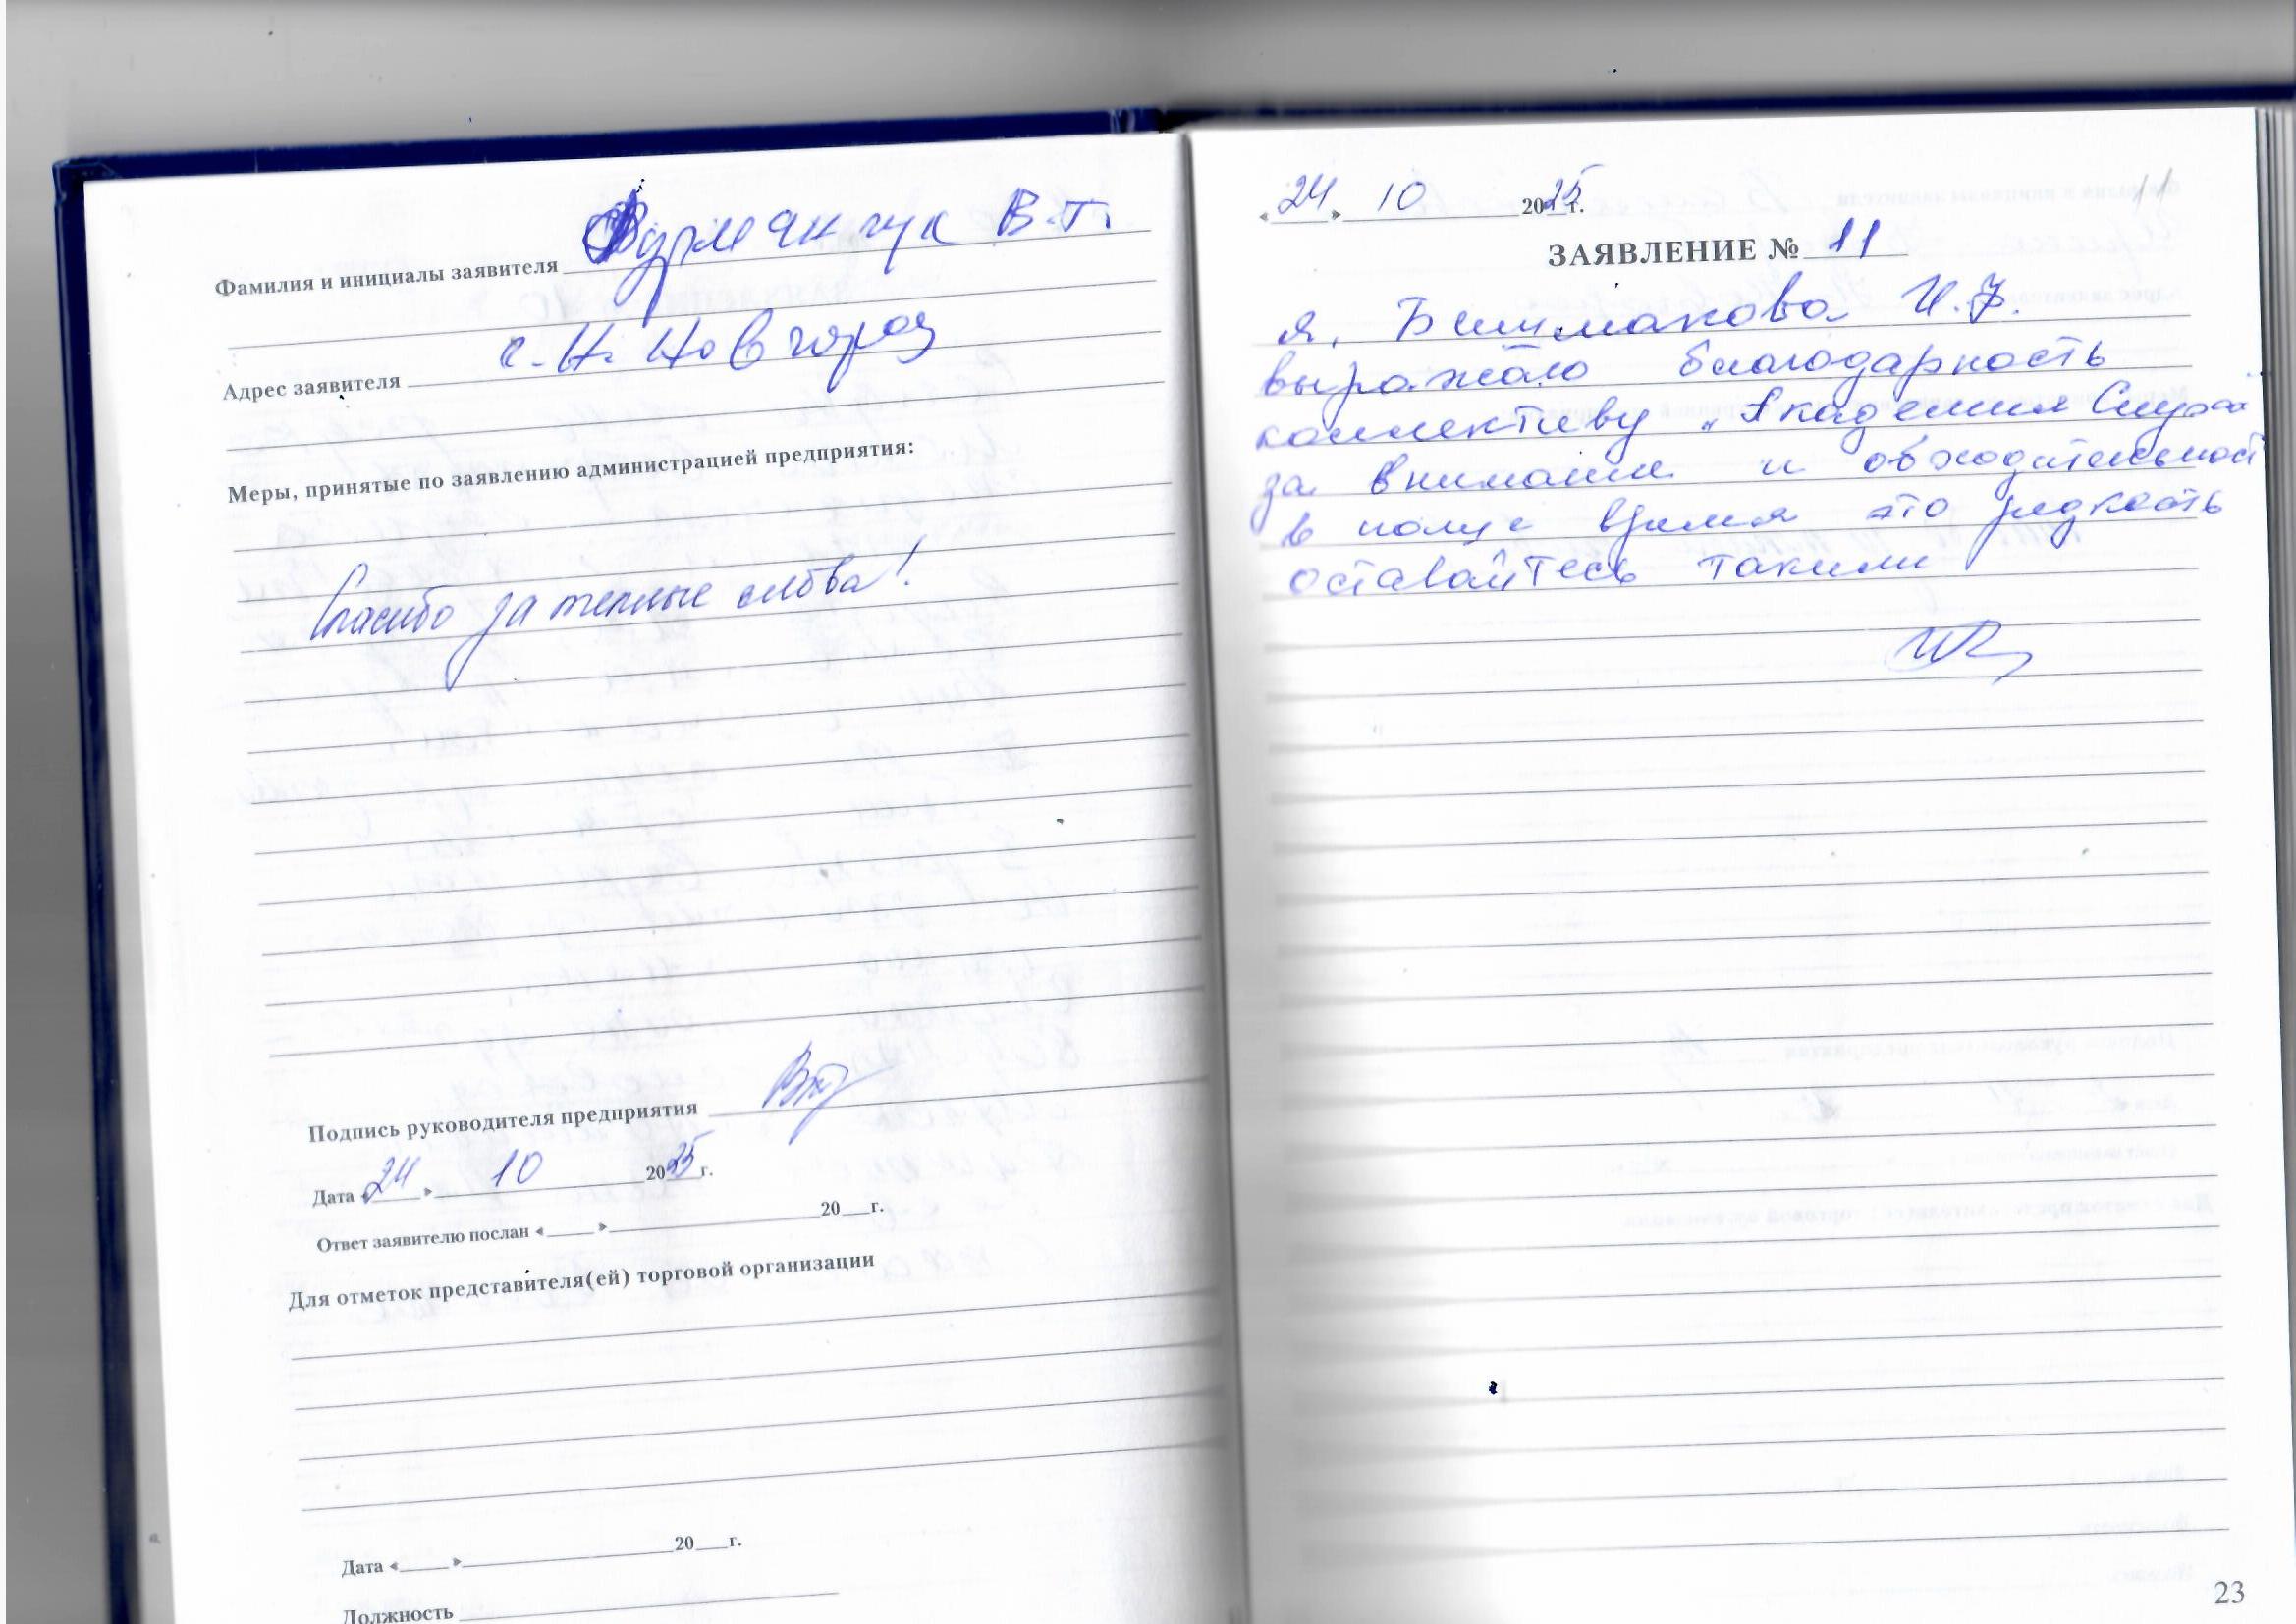 Фамилия и инициалы заявителя Фурманчук В.Т.
Адрес заявителя г. Н. Новгород
Меры, принятые по заявлению администрацией предприятия:
Спасибо за теплые слова!
Подпись руководителя предприятия
Дата «24» 10 2025 г.
Ответ заявителю послан «___» ___ 20__г.
Для отметок представителя(ей) торговой организации
Дата «___» ___ 20__г.
Должность
«24» 10 2025 г.
ЗАЯВЛЕНИЕ № 11
я, Бишмакова И.
выражаю благодарность
коллективу „Академия Слуха
за внимание и обходительност
в наше время это редкость
оставайтесь такими
23